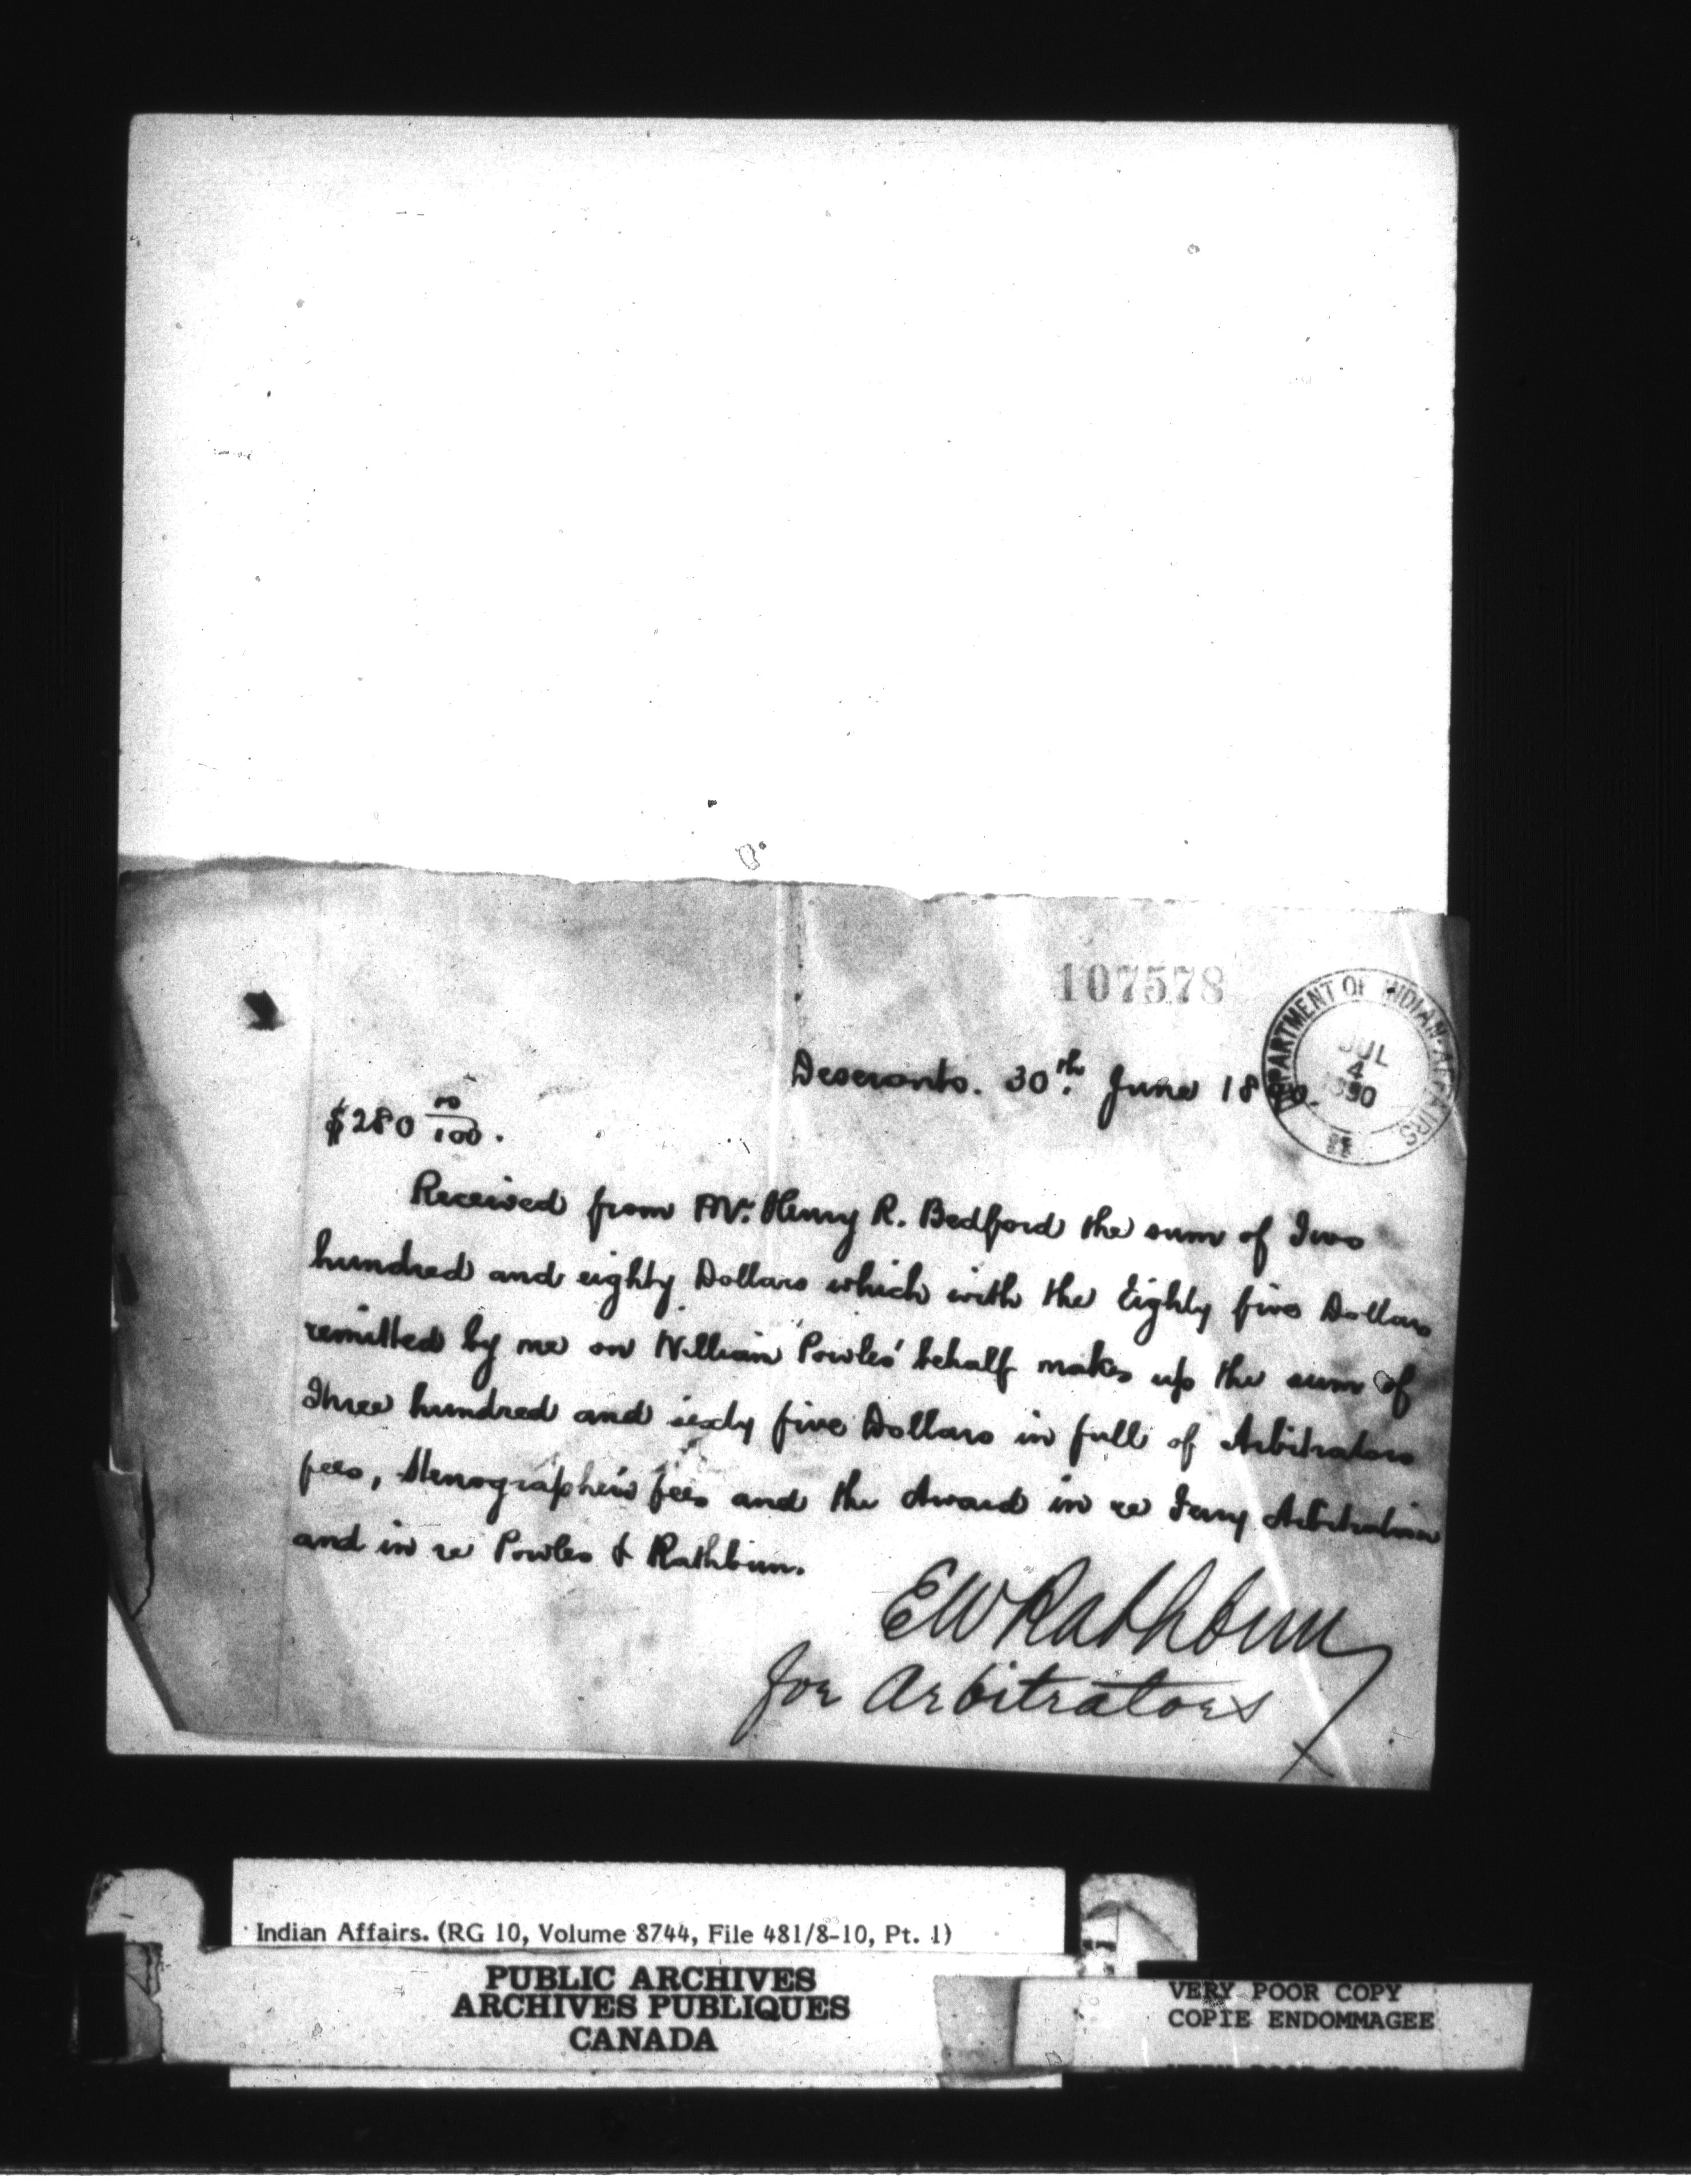 107578
DEPARTMENT OF INDIAN AFFAIRS
JUL
4
1890
Deseronto. 30th. June 1890.
$280 00/100.
Received from Mr. Henry R. Bedford the sum of Two
hundred and eighty Dollars which with the Eighty five Dollars
remitted by me on William Powles' behalf makes up the sum of
Three hundred and sixty five Dollars in full of Arbitrators
fees, Stenographer's fees and the Award in re Ferry Arbitration
and in re Powles & Rathbun.
EWRathbun
for Arbitrators
Indian Affairs. (RG 10, Volume 8744, File 481/8-10, Pt. 1)
PUBLIC ARCHIVES
ARCHIVES PUBLIQUES
CANADA
VERY POOR COPY
COPIE ENDOMMAGEE